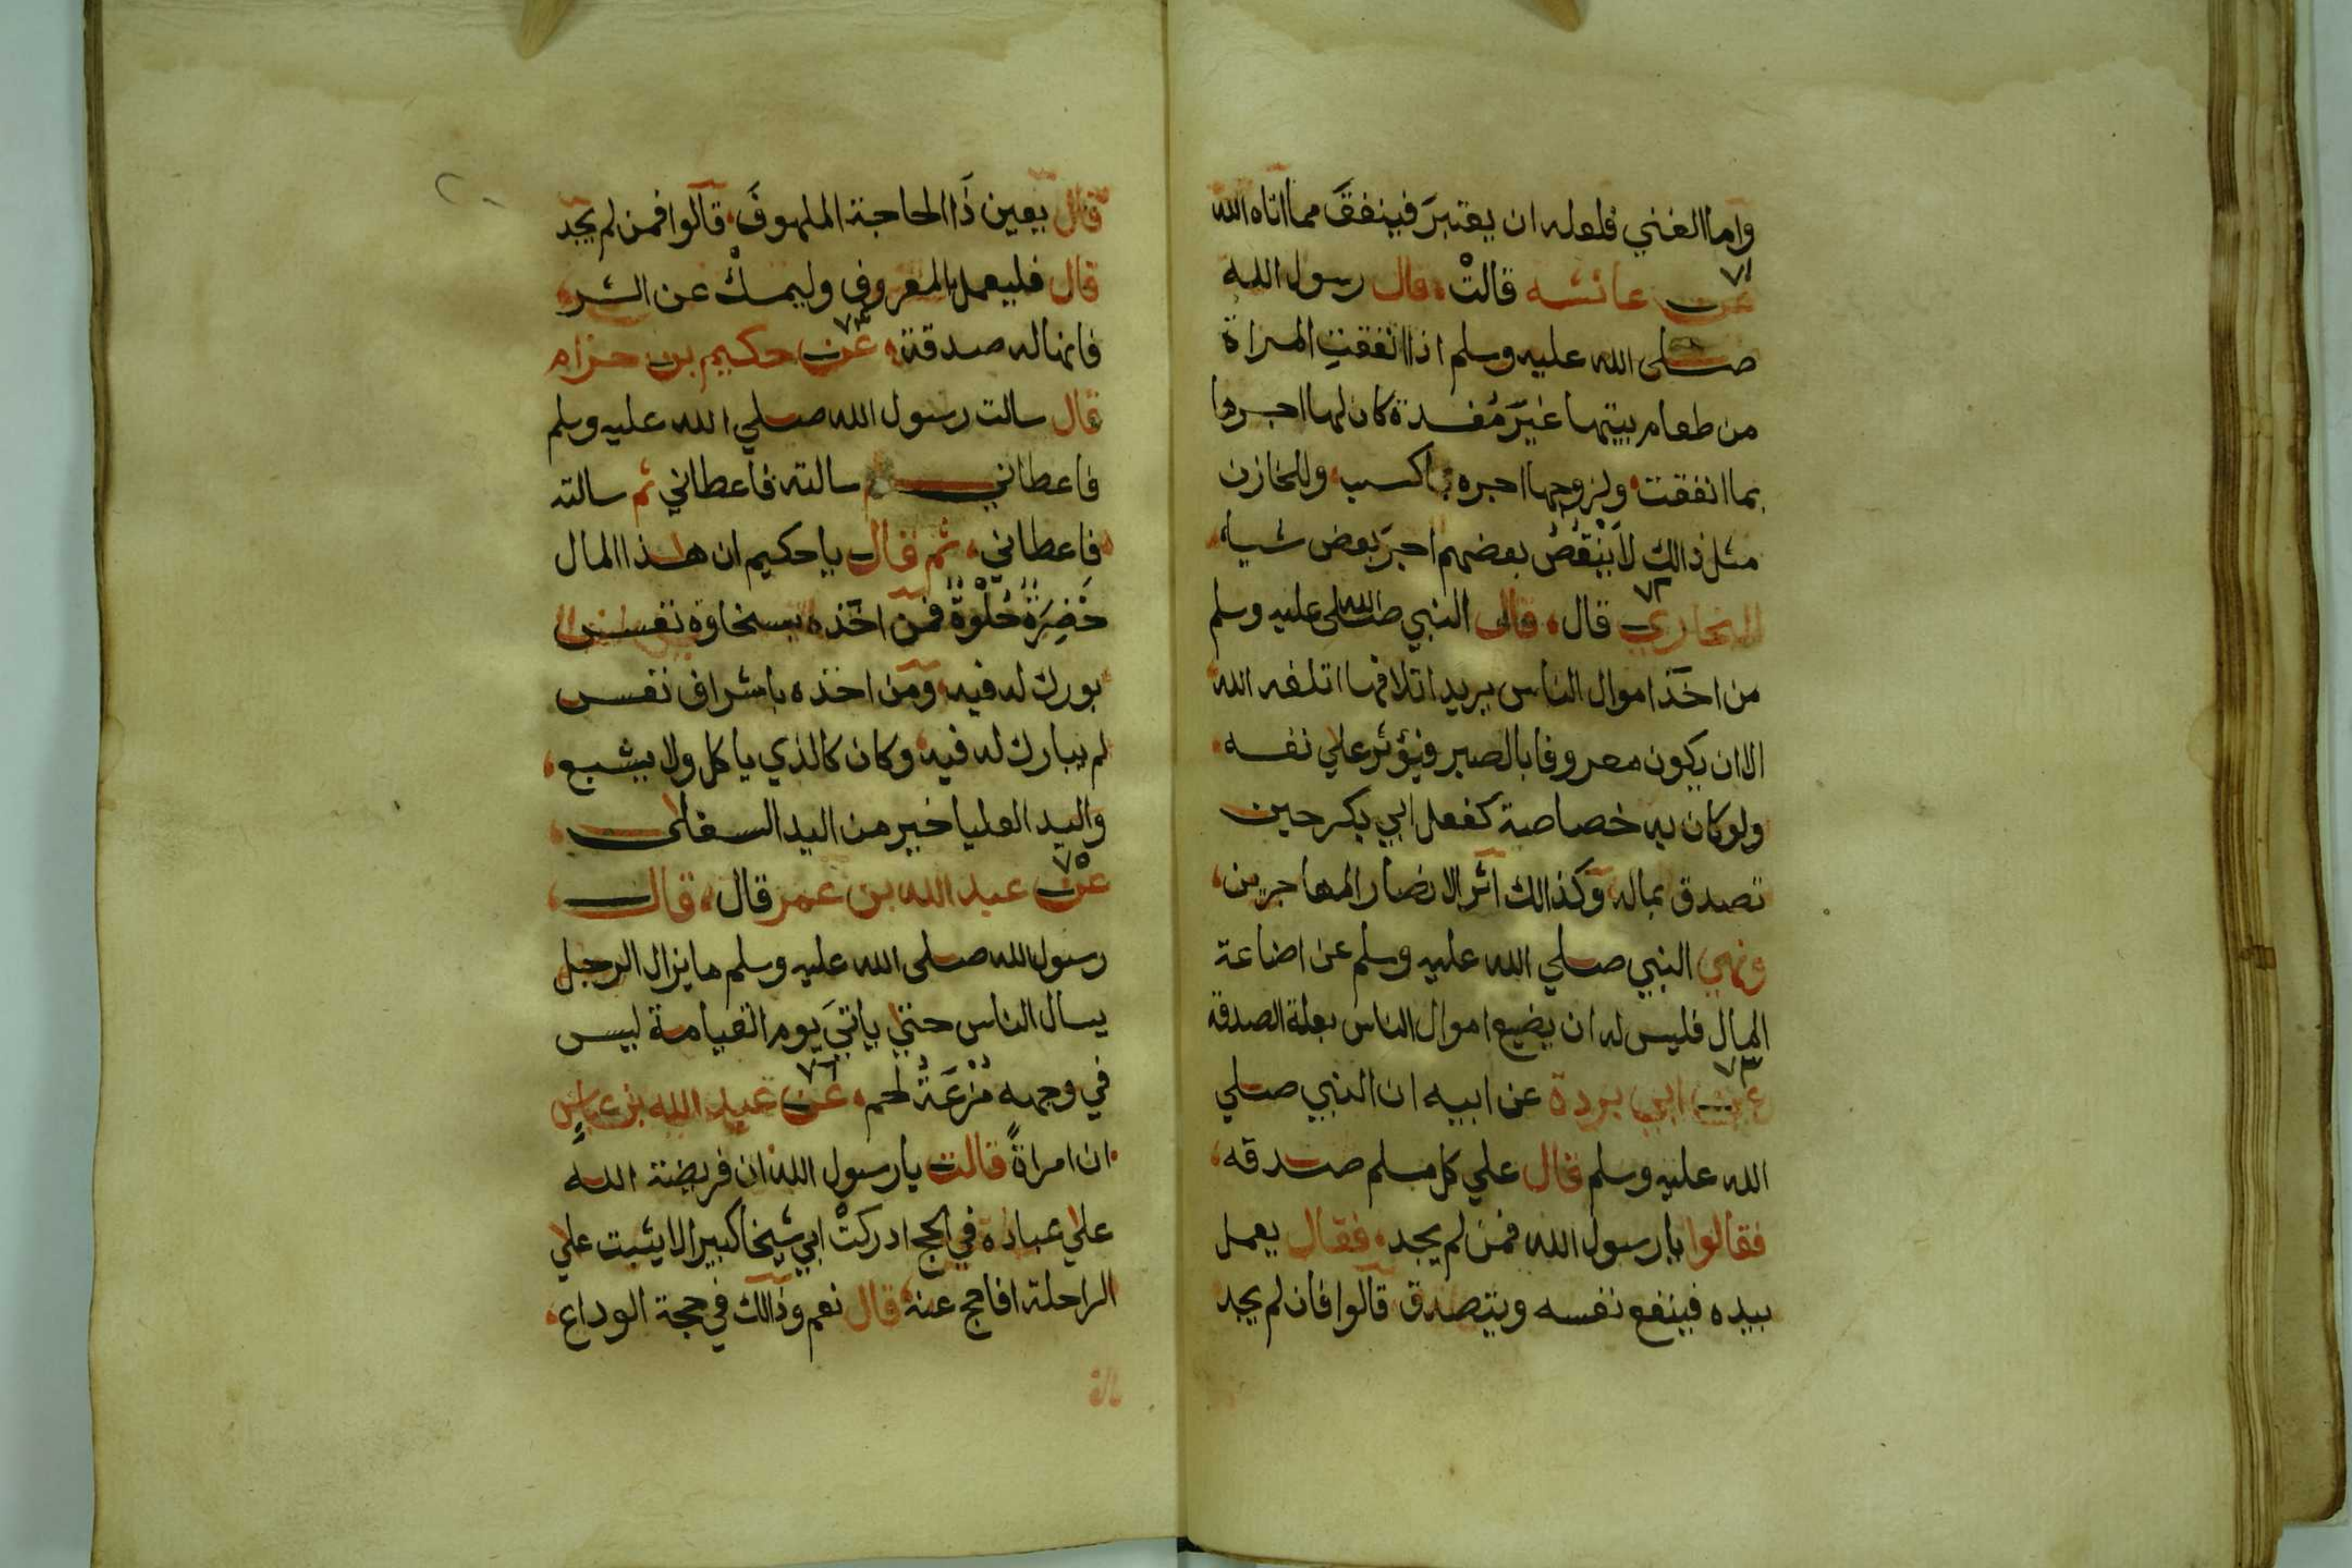 واما الغني فلعله ان يعتبرَ فينفقَ مما اتاه الله
٧١
عن عائشه قالتْ، قال رسول الله
صلى الله عليه وسلم اذا انفقتِ المراة
من طعام بيتها غيرَ مُفسدة كان لها اجرها
بما انفقت ولزوجها اجره بما كسب، وللخازن
مثل ذالك لاَ يَنْقُصُ بعضهم اجرَ بعض شيا،
٧٢
البخاري قال، قال النبي صلى الله عليه وسلم
من اخَذ اموال الناس يريد اتلافها اتلفه الله
الا ان يكون معروفا بالصبر فيؤثر علي نفسه
ولو كان به خصاصة كفعل ابي بكر حين
تصدق بماله وكذالك اثر الانصار المهاجرين،
ونهي النبي صلي الله عليه وسلم عن اضاعة
المال فليس له ان يضيع اموال الناس بعلة الصدقة
٧٣
عن ابي بردة عن ابيه ان النبي صلي
الله عليه وسلم قال علي كل مسلم صدقه،
فقالوا يا رسول الله فمن لم يجد، فقال يعمل
بيده فينفع نفسه ويتصدق قالوا فان لم يجد
قال يعين ذَا الحاجة الملهوفَ، قالوا فمن لم يجد
قال فليعمل بالمعروف وليمسكْ عن الشر،
فانها له صدقة، ٧٤ عن حكيم بن حزام
قال سالت رسول الله صلي الله عليه وسلم
فاعطاني ثم سالته فاعطاني ثم سالته
فاعطاني، ثم قال يا حكيم ان هذا المال
خَضِرَةٌ حُلْوَةٌ فمن اخَذه بسخاوة نفس
بورك له فيه، ومن اخذه باشراف نفس
لم يبارك له فيه، وكان كالذي ياكل ولا يشبع،
واليد العليا خير من اليد السفلى،
٧٥
عنْ عبد الله بن عمر قال، قال،
رسول الله صلى الله عليه وسلم ما يزال الرجل
يسال الناس حتي ياتيَ يوم القيامة ليس
في وجهه مُزْعَةُ لحم، ٧٦ عن عبد الله بن عباسٍ
ان امراةً قالت يا رسول الله ان فريضة الله
علي عباده في الحج ادركتْ ابي شيخا كبيرا لا يثبت علي
الراحلة افاحج عنه قال نعم وذالك في حجة الوداع،